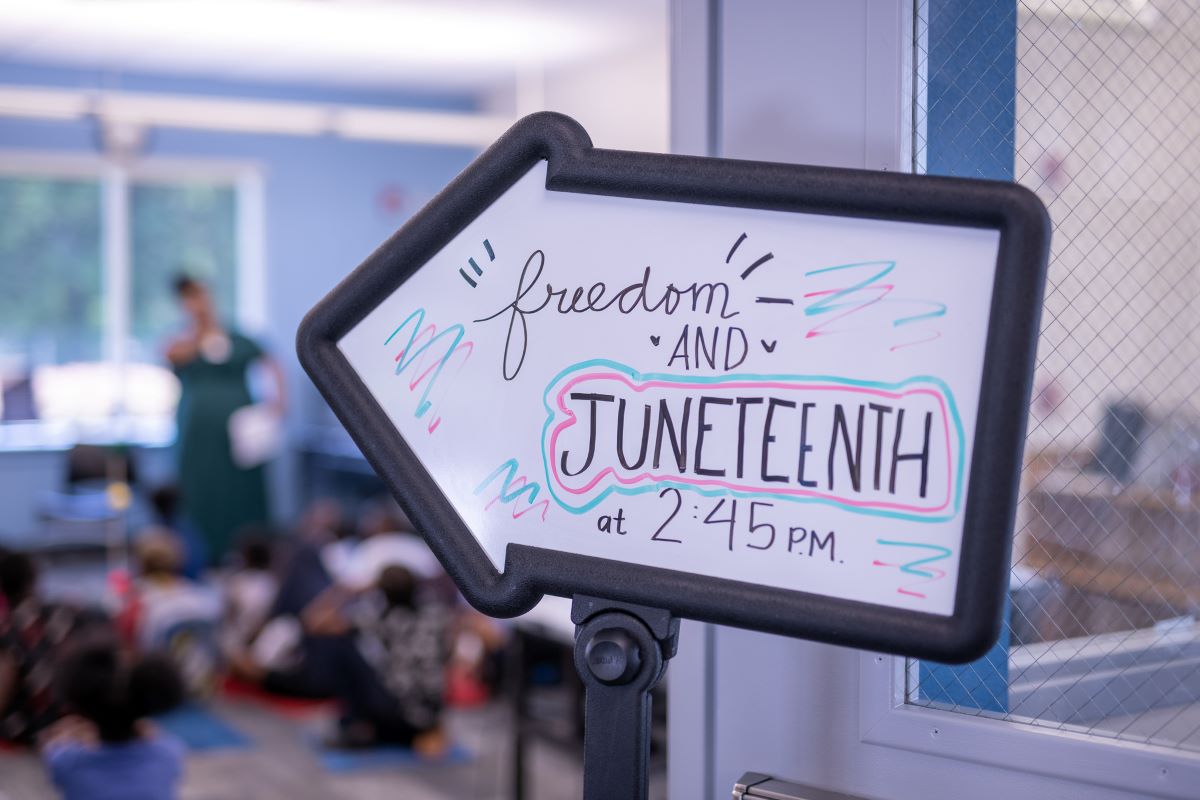 freedom
AND
JUNETEENTH
at 2:45 P.M.